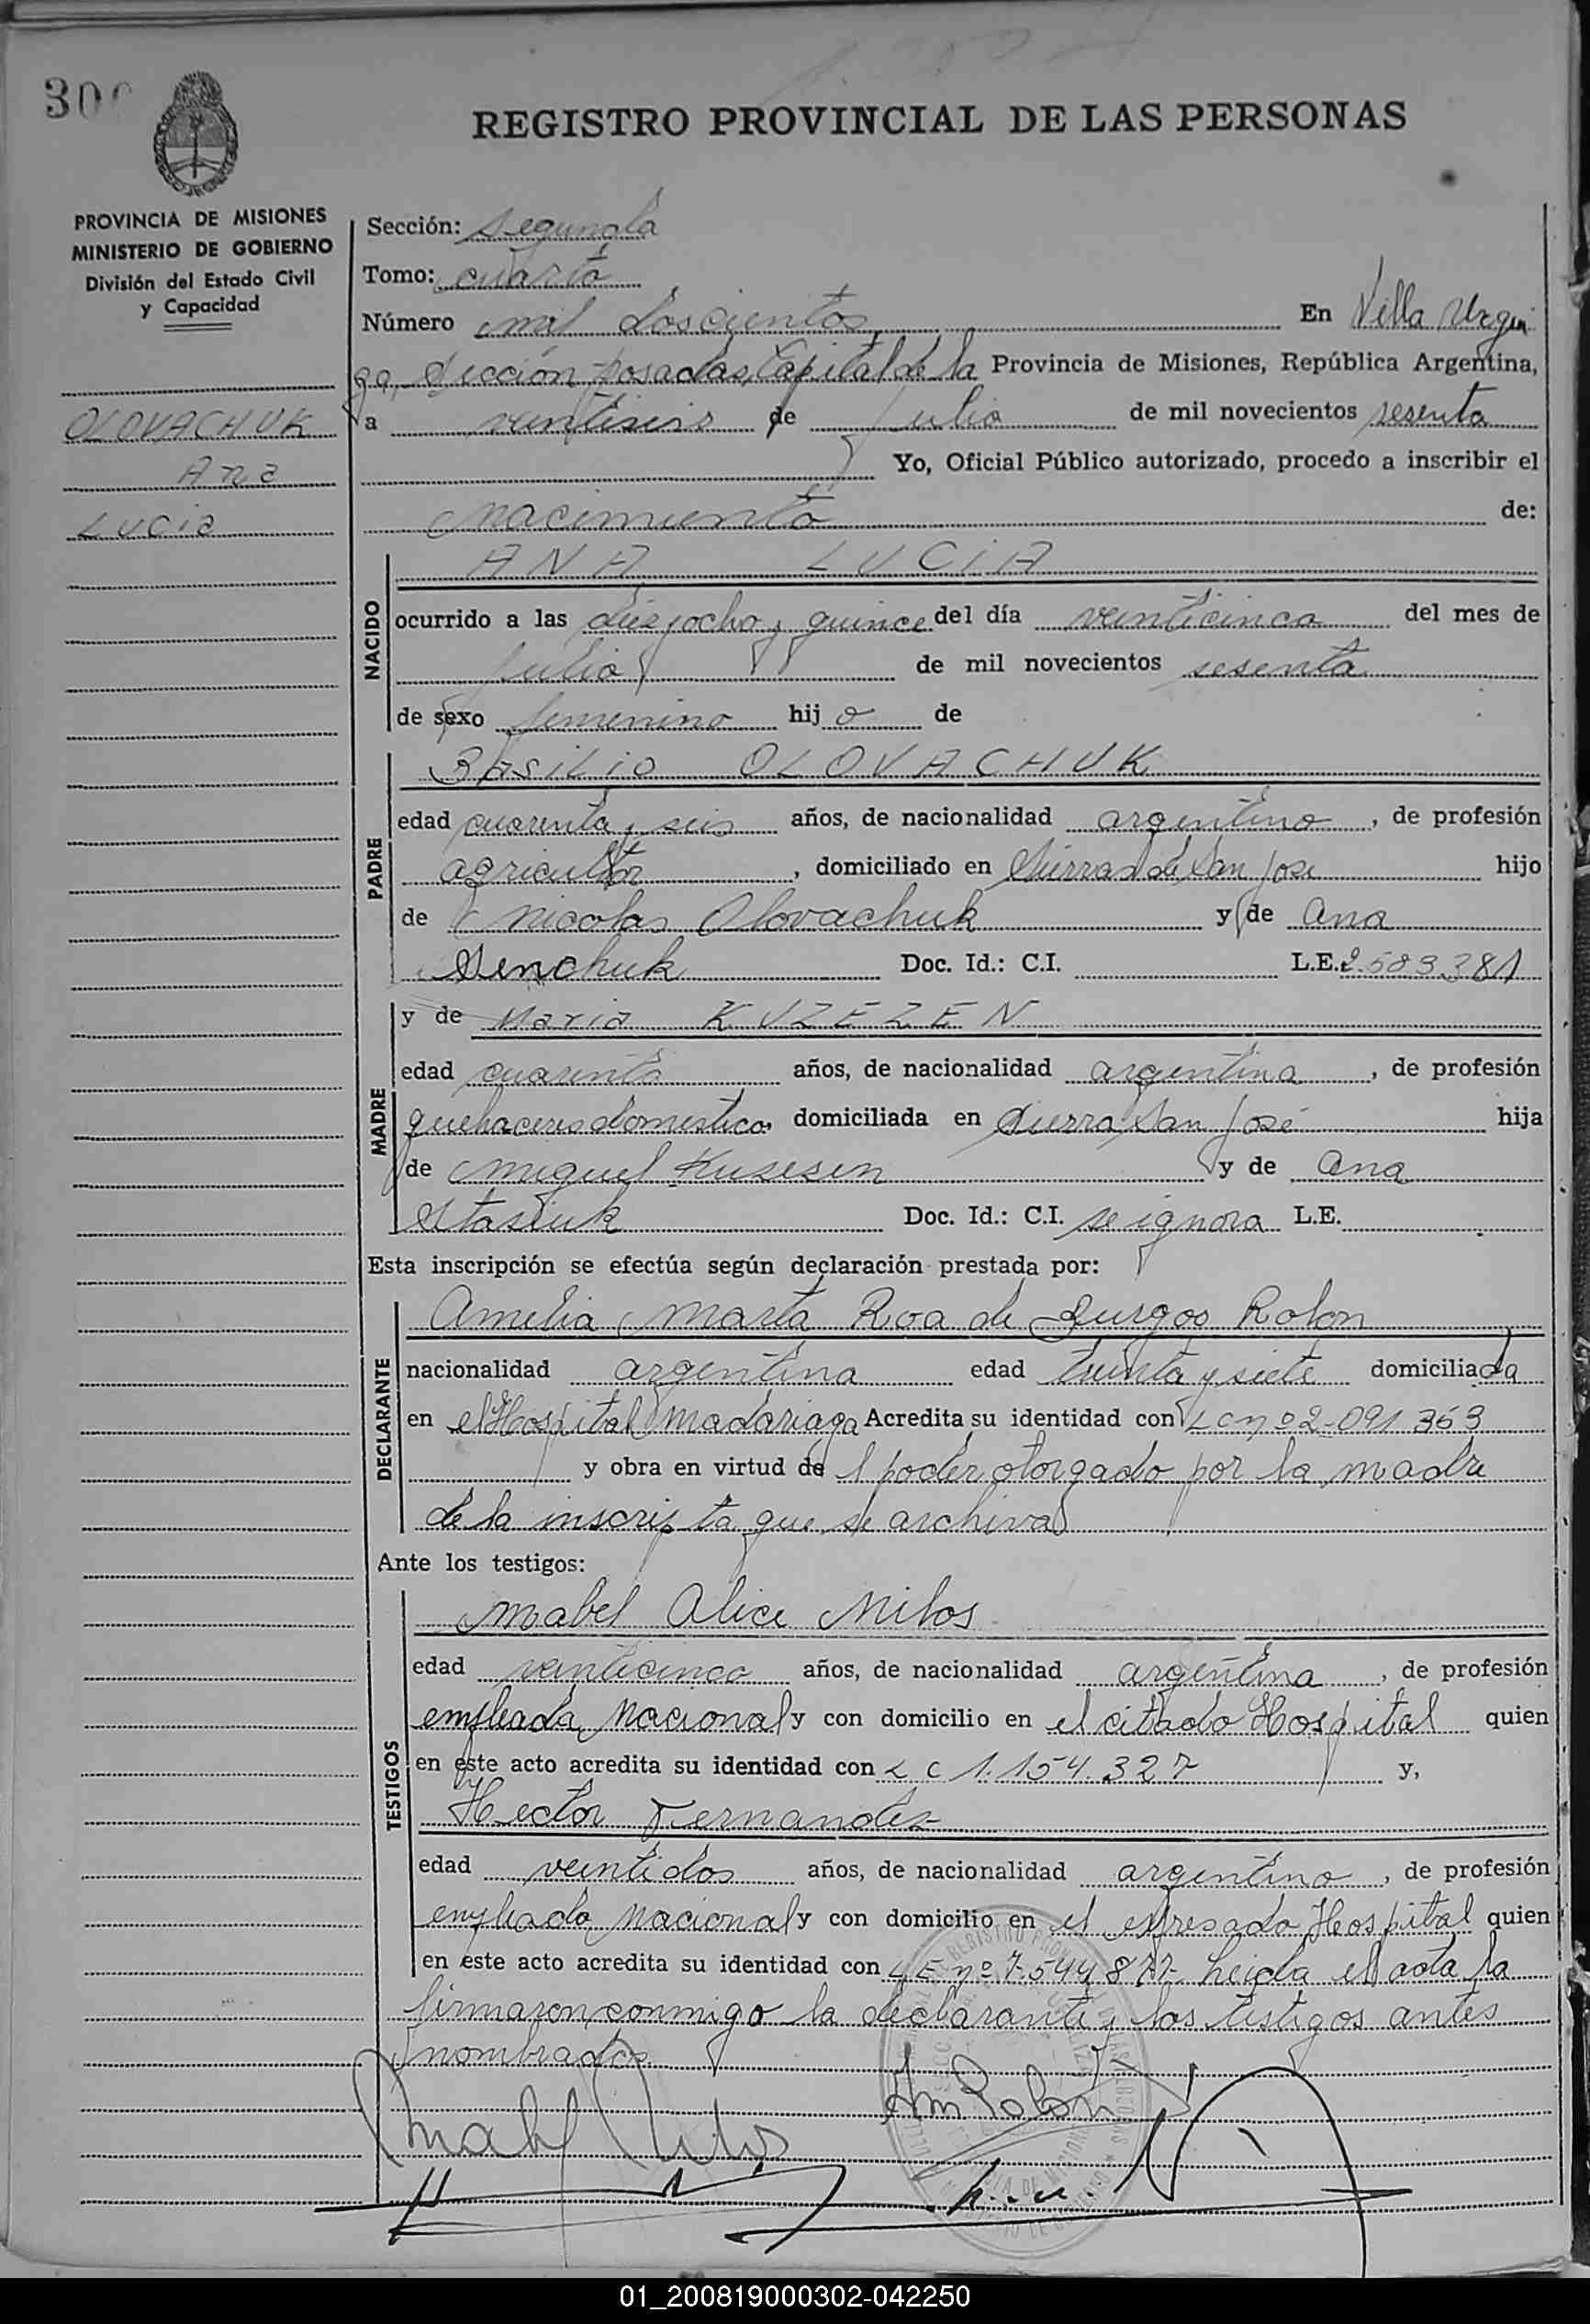 300
REGISTRO PROVINCIAL DE LAS PERSONAS
PROVINCIA DE MISIONES
MINISTERIO DE GOBIERNO
División del Estado Civil
y Capacidad
OLOVACHUK
Ana
Lucia
Sección: Segunda
Tomo: cuarto
Número mil doscientos En Villa Urqui
ga, Sección Posadas, Capital de la Provincia de Misiones, República Argentina,
a veintiseis de Julio de mil novecientos sesenta
Yo, Oficial Público autorizado, procedo a inscribir el
nacimiento de:
NACIDO
ANA LUCIA
ocurrido a las dieziocho y quince del día veinticinco del mes de
Julio de mil novecientos sesenta
de sexo femenino hij a de
PADRE
Basilio OLOVACHUK
edad cuarenta y seis años, de nacionalidad argentino, de profesión
agricultor, domiciliado en Sierras de San José hijo
de Nicolas Olovachuk y de Ana
Senchuk Doc. Id.: C.I. L.E. 2.583.381
MADRE
y de Maria KUZEZEN
edad cuarenta años, de nacionalidad argentina, de profesión
quehaceres domesticos domiciliada en Sierra San José hija
de Miguel Kusesen y de Ana
Stasiuk Doc. Id.: C.I. se ignora L.E.
Esta inscripción se efectúa según declaración prestada por:
DECLARANTE
Amelia Marta Roa de Burgos Rolon
nacionalidad argentina edad treinta y siete domiciliada
en el Hospital Madariaga Acredita su identidad con LC nº 2-091.363
y obra en virtud del poder otorgado por la madre
de la inscripta que se archiva
Ante los testigos:
TESTIGOS
Mabel Alice Milos
edad veinticinco años, de nacionalidad argentina, de profesión
empleada Nacional y con domicilio en el citado Hospital quien
en este acto acredita su identidad con LC 1.154.327 y,
Hector Fernandez
edad veintidos años, de nacionalidad argentino, de profesión
empleado Nacional y con domicilio en el expresado Hospital quien
en este acto acredita su identidad con LE nº 7.544.877 Leida el acta la
firmaron conmigo la declarante y los testigos antes
nombrados
Mabel Milos
Am Rolón
01_200819000302-042250